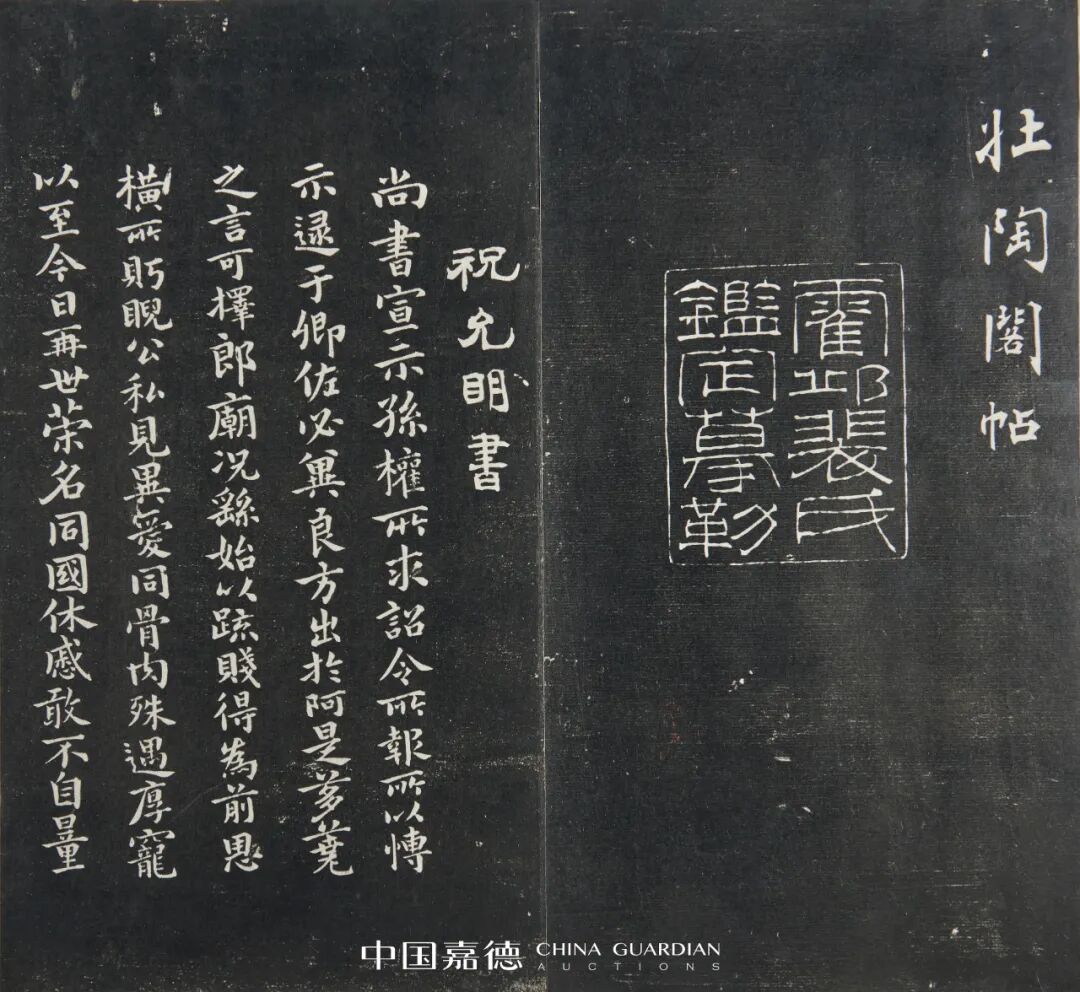 壯陶閣帖
霍邱裴氏
鑑定摹勒
祝允明書
尚書宣示孫權所求詔令所報所以博
示逯于卿佐必冀良方出於阿是芻蕘
之言可擇郎廟况繇始以疏賤得為前恩
橫所眄睨公私見異愛同骨肉殊遇厚寵
以至今日再世荣名同國休慼敢不自量
中国嘉德 CHINA GUARDIAN
AUCTIONS